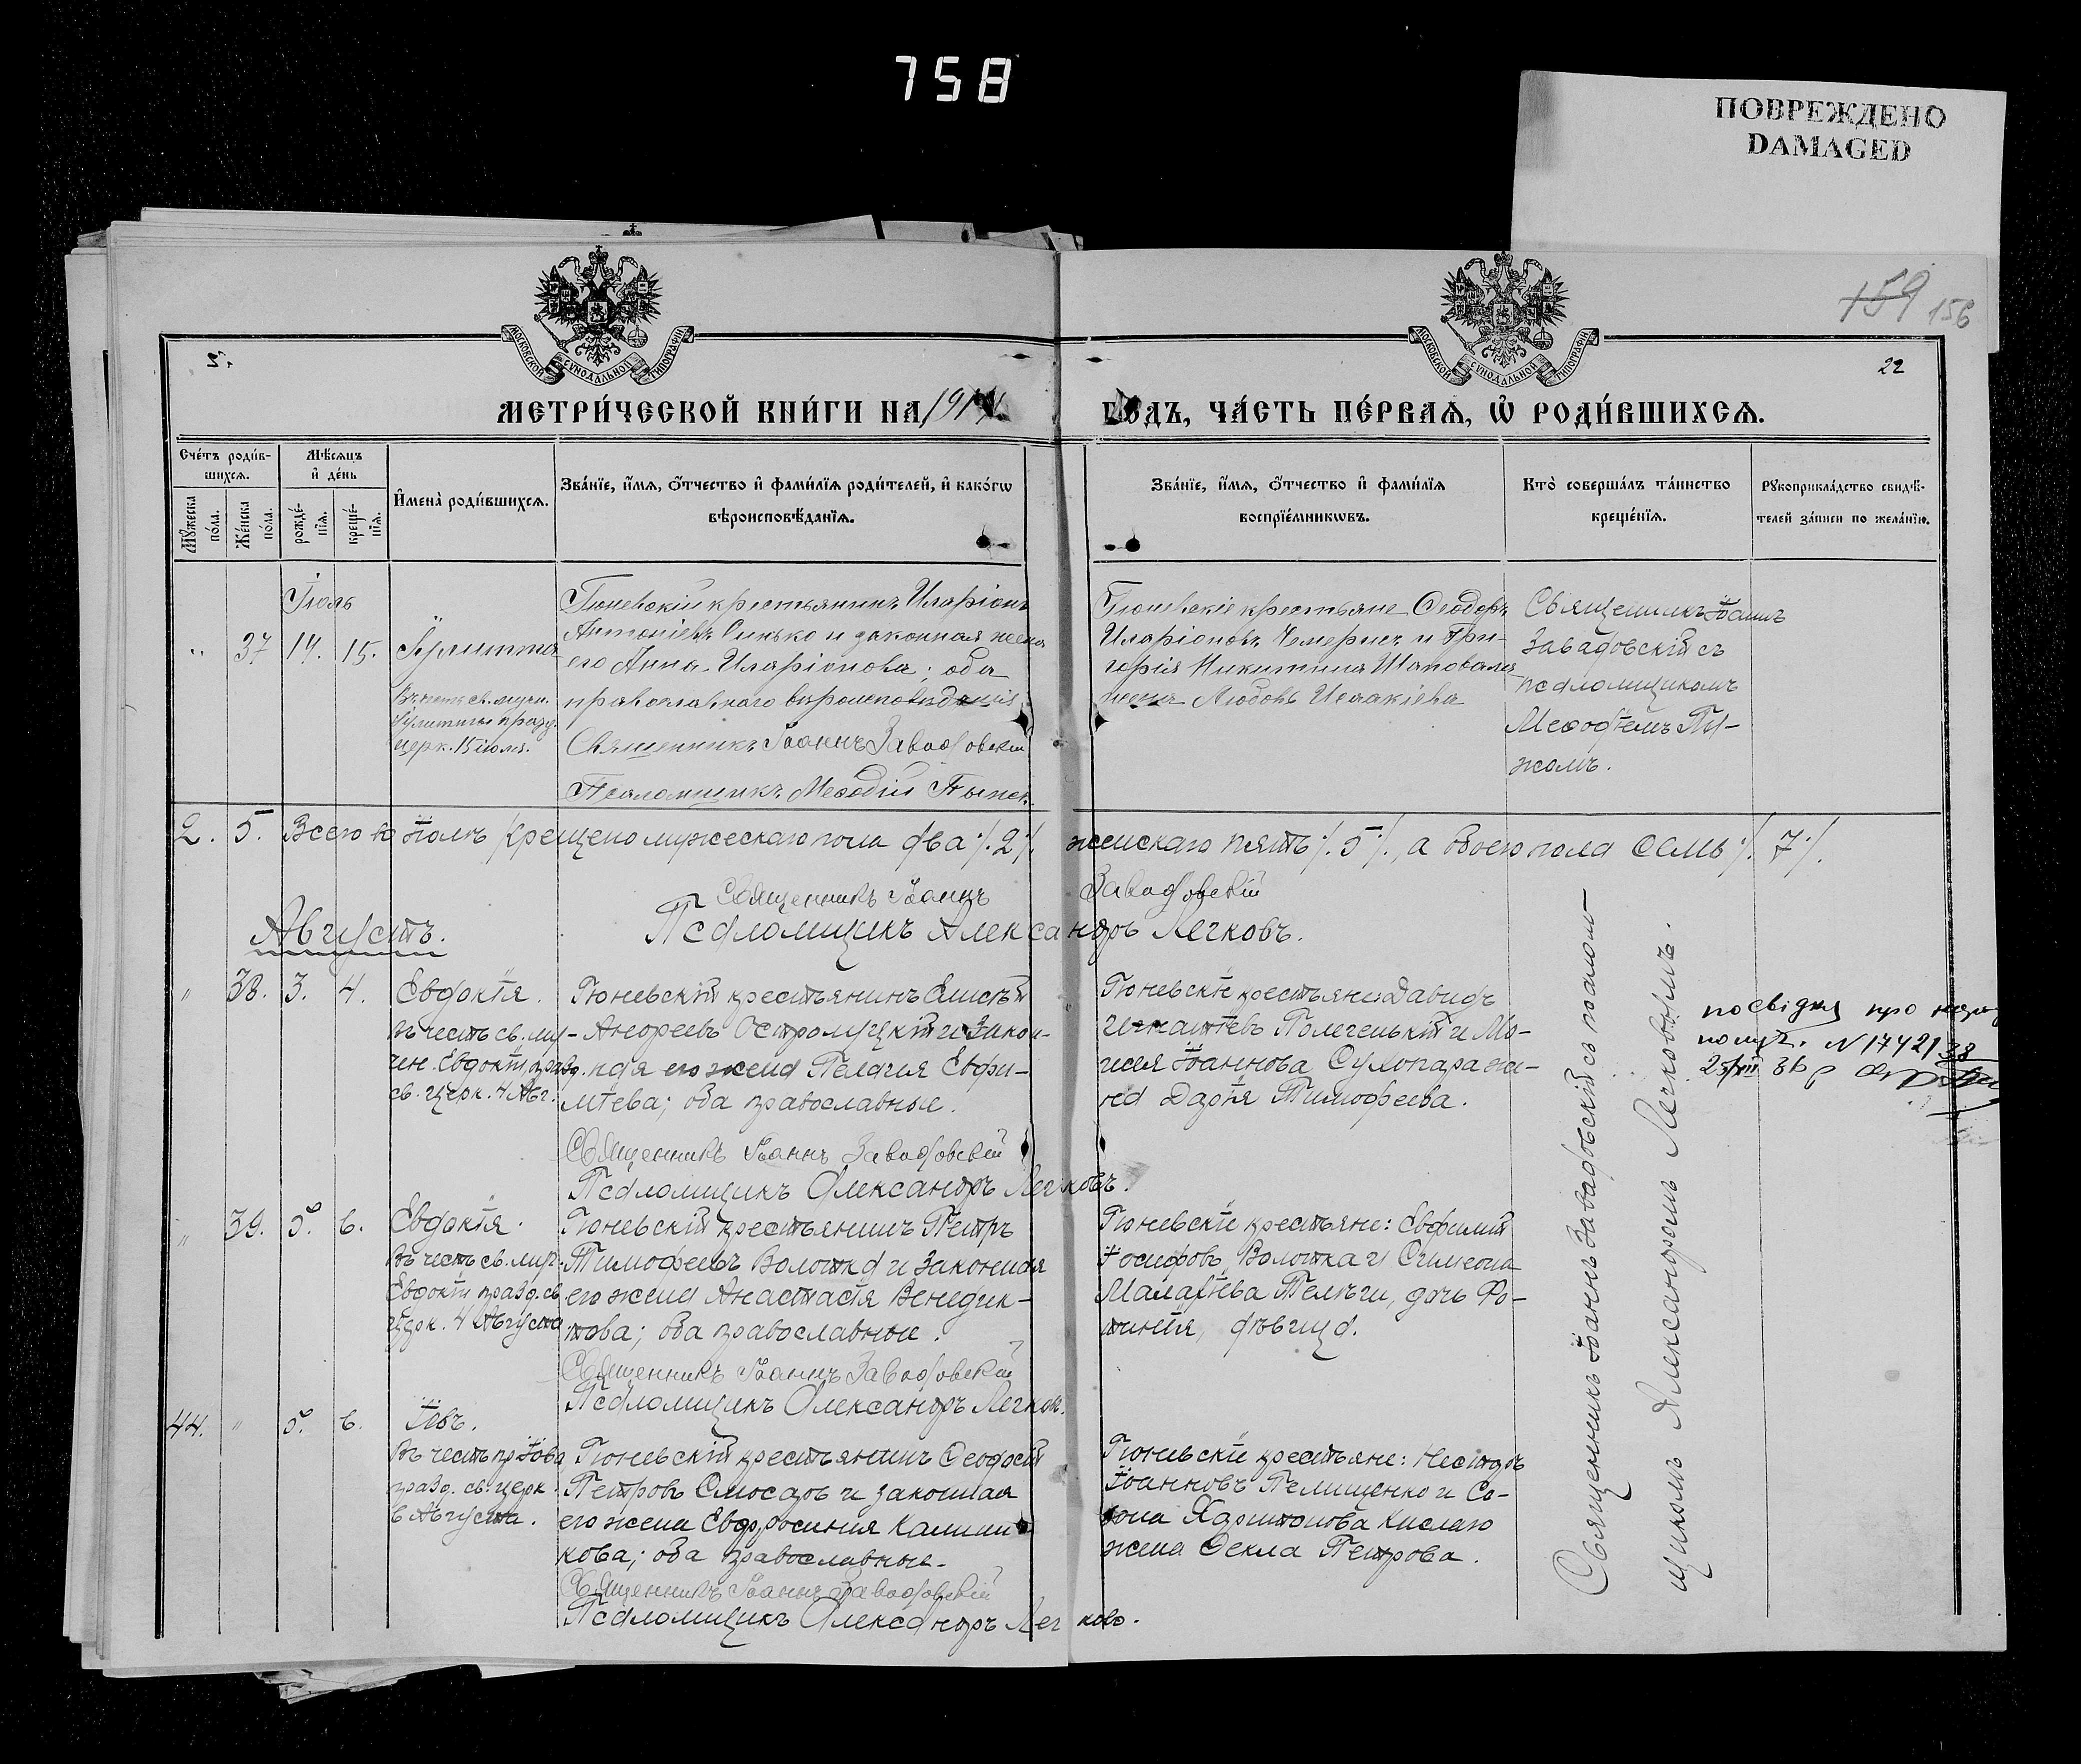 758
ПОВРЕЖДЕНО
DAMAGED
159 156
22
МОСКОВСКОЙ СУНОДАЛЬНОЙ ТИПОГРАФІИ
МОСКОВСКОЙ СУНОДАЛЬНОЙ ТИПОГРАФІИ
МЕТРИ́ЧЕСКОЙ КНИ́ГИ НА 1914 ГОДЪ, ЧА́СТЬ ПЕ́РВАЯ, Ѡ҆ РОДИ́ВШИХСЯ.
Сче́тъ роди́в-
шихся.
Мѣ́сяцъ
и҆ де́нь
Мꙋ́жеска
по́ла.
Же́нска
по́ла.
рожде́-
нїя.
креще́-
нїя.
И҆мена̀ роди́вшихся.
Зва́нїе, и҆́мя, ѻ҆́тчество и҆ фами́лїя роди́телей, и҆ како́гѡ
вѣроисповѣ́данїя.
Зва́нїе, и҆́мя, ѻ҆́тчество и҆ фами́лїя
воспрїе́мникѡвъ.
Кто̀ соверша́лъ та́инство
креще́нїя.
Рꙋкоприкла́дство свидѣ́-
телей за́писи по жела́нїю.
Іюль
" 37 14. 15. Іулитта
Въ честь св. мучен.
Іулитты празд.
церк. 15 іюля.
Гюневскій крестьянинъ Иларіонъ
Антоніевъ Синько и законная жена
его Анна Иларіонова; оба
православнаго вѣроисповѣданія
Священникъ Іоаннъ Завадовскій
Псаломщикъ Меѳодій Пыжъ.
Гюневскіе крестьяне Ѳеодоръ
Иларіоновъ Чемерисъ и Гри-
горія Никитина Шаповала
жена Любовь Исаакіева
Священникъ Іоаннъ
Завадовскій съ
псаломщикомъ
Меѳодіемъ Пы-
жомъ.
2. 5. Всего въ Іюлѣ крещено мужескаго пола два ./.2./. женскаго пять ./.5./., а обоего пола семь ./.7./.
Священникъ Іоаннъ Завадовскій
Псаломщикъ Александръ Легковъ.
Августъ.
" 38. 3. 4. Евдокія.
Въ честь св. му-
чен. Евдокіи, празд.
св. церк. 4 Авг.
Гюневскій крестьянинъ Елисѣй
Андреевъ Остромуцкій и закон-
ная его жена Пелагія Евфи-
міева; оба православные.
Священникъ Іоаннъ Завадовскій
Псаломщикъ Александръ Легковъ.
Гюневскіе крестьяне: Давидъ
Игнатіевъ Полеченькій и Мо-
исея Іоаннова Сухопара же-
на Дарія Тимофеева.
посвідка про народ
N 1742138
" 39. 5. 6. Евдокія.
Въ честь св. муч.
Евдокіи празд. св.
церк. 4 Августа.
Гюневскій крестьянинъ Петръ
Тимофеевъ Волошка и законная
его жена Анастасія Венедик-
това; оба православные.
Священникъ Іоаннъ Завадовскій
Псаломщикъ Александръ Легков.
Гюневскіе крестьяне: Евфимій
Іосифовъ Волошка и Симеона
Малафіева Телѣги, дочь Фо-
тинія, дѣвица.
44. " 5. 6. Іовъ.
Въ честь пр. Іова
празд. св. церк.
6 Августа.
Гюневскій крестьянинъ Ѳеодосій
Петровъ Слюсарь и законная
его жена Евфросинія Каллини-
кова; оба православные.
Священникъ Іоаннъ Завадовскій
Псаломщикъ Александръ Легковъ.
Гюневскіе крестьяне: Несторъ
Іоанновъ Пелищенко и Со-
зона Харитонова Кислаго
жена Ѳекла Петрова.
Священникъ Іоаннъ Завадовскій съ псалом-
щикомъ Александромъ Легковымъ.